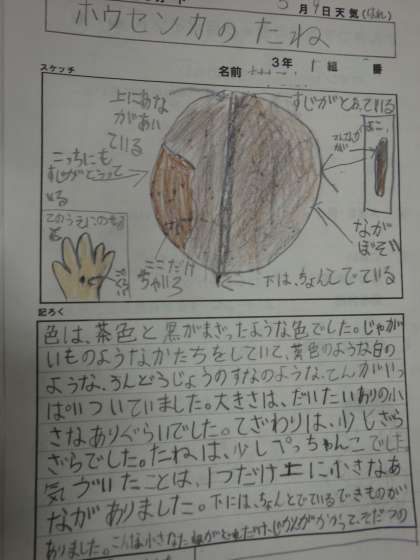 5月9日天気(はれ)
ホウセンカのたね
3年 組 番
スケッチ
名前
上にあな
があい
ている
すじがとおっている
こっちにも
すじがとうって
いる
よこ
てんてんが
ながぼそい
このうえにのせる
ここだけ
ちゃいろ
下は、ちょんとでている
記ろく
色は、茶色と黒がまざったような色でした。じゃが
いものようなかたちをしていて、黄色のような白の
ような、うんどうじょうのすなのような、てんがいっ
ぱいついていました。大きさは、だいたいありの小
さなありぐらいでした。てざわりは、少しざら
ざらでした。たねは、少しぺっちゃんこでした。
気づいたことは、1つだけ上に小さなあ
ながありました。下には、ちょんとでているできものが
ありました。こんな小さなたね